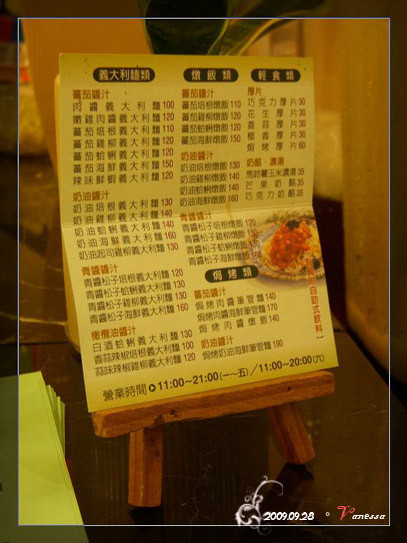 義大利麵類
蕃茄醬汁
肉醬義大利麵100
嫩雞肉醬義大利麵120
蕃茄培根義大利麵110
蕃茄雞柳義大利麵120
蕃茄蛤蜊義大利麵120
蕃茄海鮮義大利麵150
辣味鮮蝦義大利麵120
奶油醬汁
奶油培根義大利麵130
奶油雞柳義大利麵140
奶油蛤蜊義大利麵140
奶油海鮮義大利麵160
奶油起司雞柳義大利麵130
青醬醬汁
青醬松子培根義大利麵120
青醬松子蛤蜊義大利麵130
青醬松子雞柳義大利麵130
青醬松子海鮮義大利麵160
橄欖油醬汁
白酒蛤蜊義大利麵130
香蒜辣椒培根義大利麵100
蒜味辣椒雞柳義大利麵120
燉飯類
蕃茄醬汁
蕃茄培根燉飯110
蕃茄雞柳燉飯120
蕃茄蛤蜊燉飯120
蕃茄海鮮燉飯150
奶油醬汁
奶油培根燉飯130
奶油雞柳燉飯140
奶油蛤蜊燉飯140
奶油海鮮燉飯160
青醬醬汁
青醬松子培根燉飯120
青醬松子雞柳燉飯130
青醬松子蛤蜊燉飯130
青醬松子海鮮燉飯160
焗烤類
蕃茄醬汁
焗烤肉醬筆管麵140
焗烤肉醬海鮮筆管麵170
焗烤肉醬燉飯140
奶油醬汁
焗烤奶油海鮮筆管麵190
輕食類
厚片
巧克力厚片30
花生厚片30
香蒜厚片30
椰香厚片30
焗烤厚片60
奶酪、濃湯
馬鈴薯玉米濃湯35
芒果奶酪35
巧克力奶酪35
自助式飲料
營業時間 11:00~21:00(一~五)/11:00~20:00(六)
2009.09.28 ° Vanessa